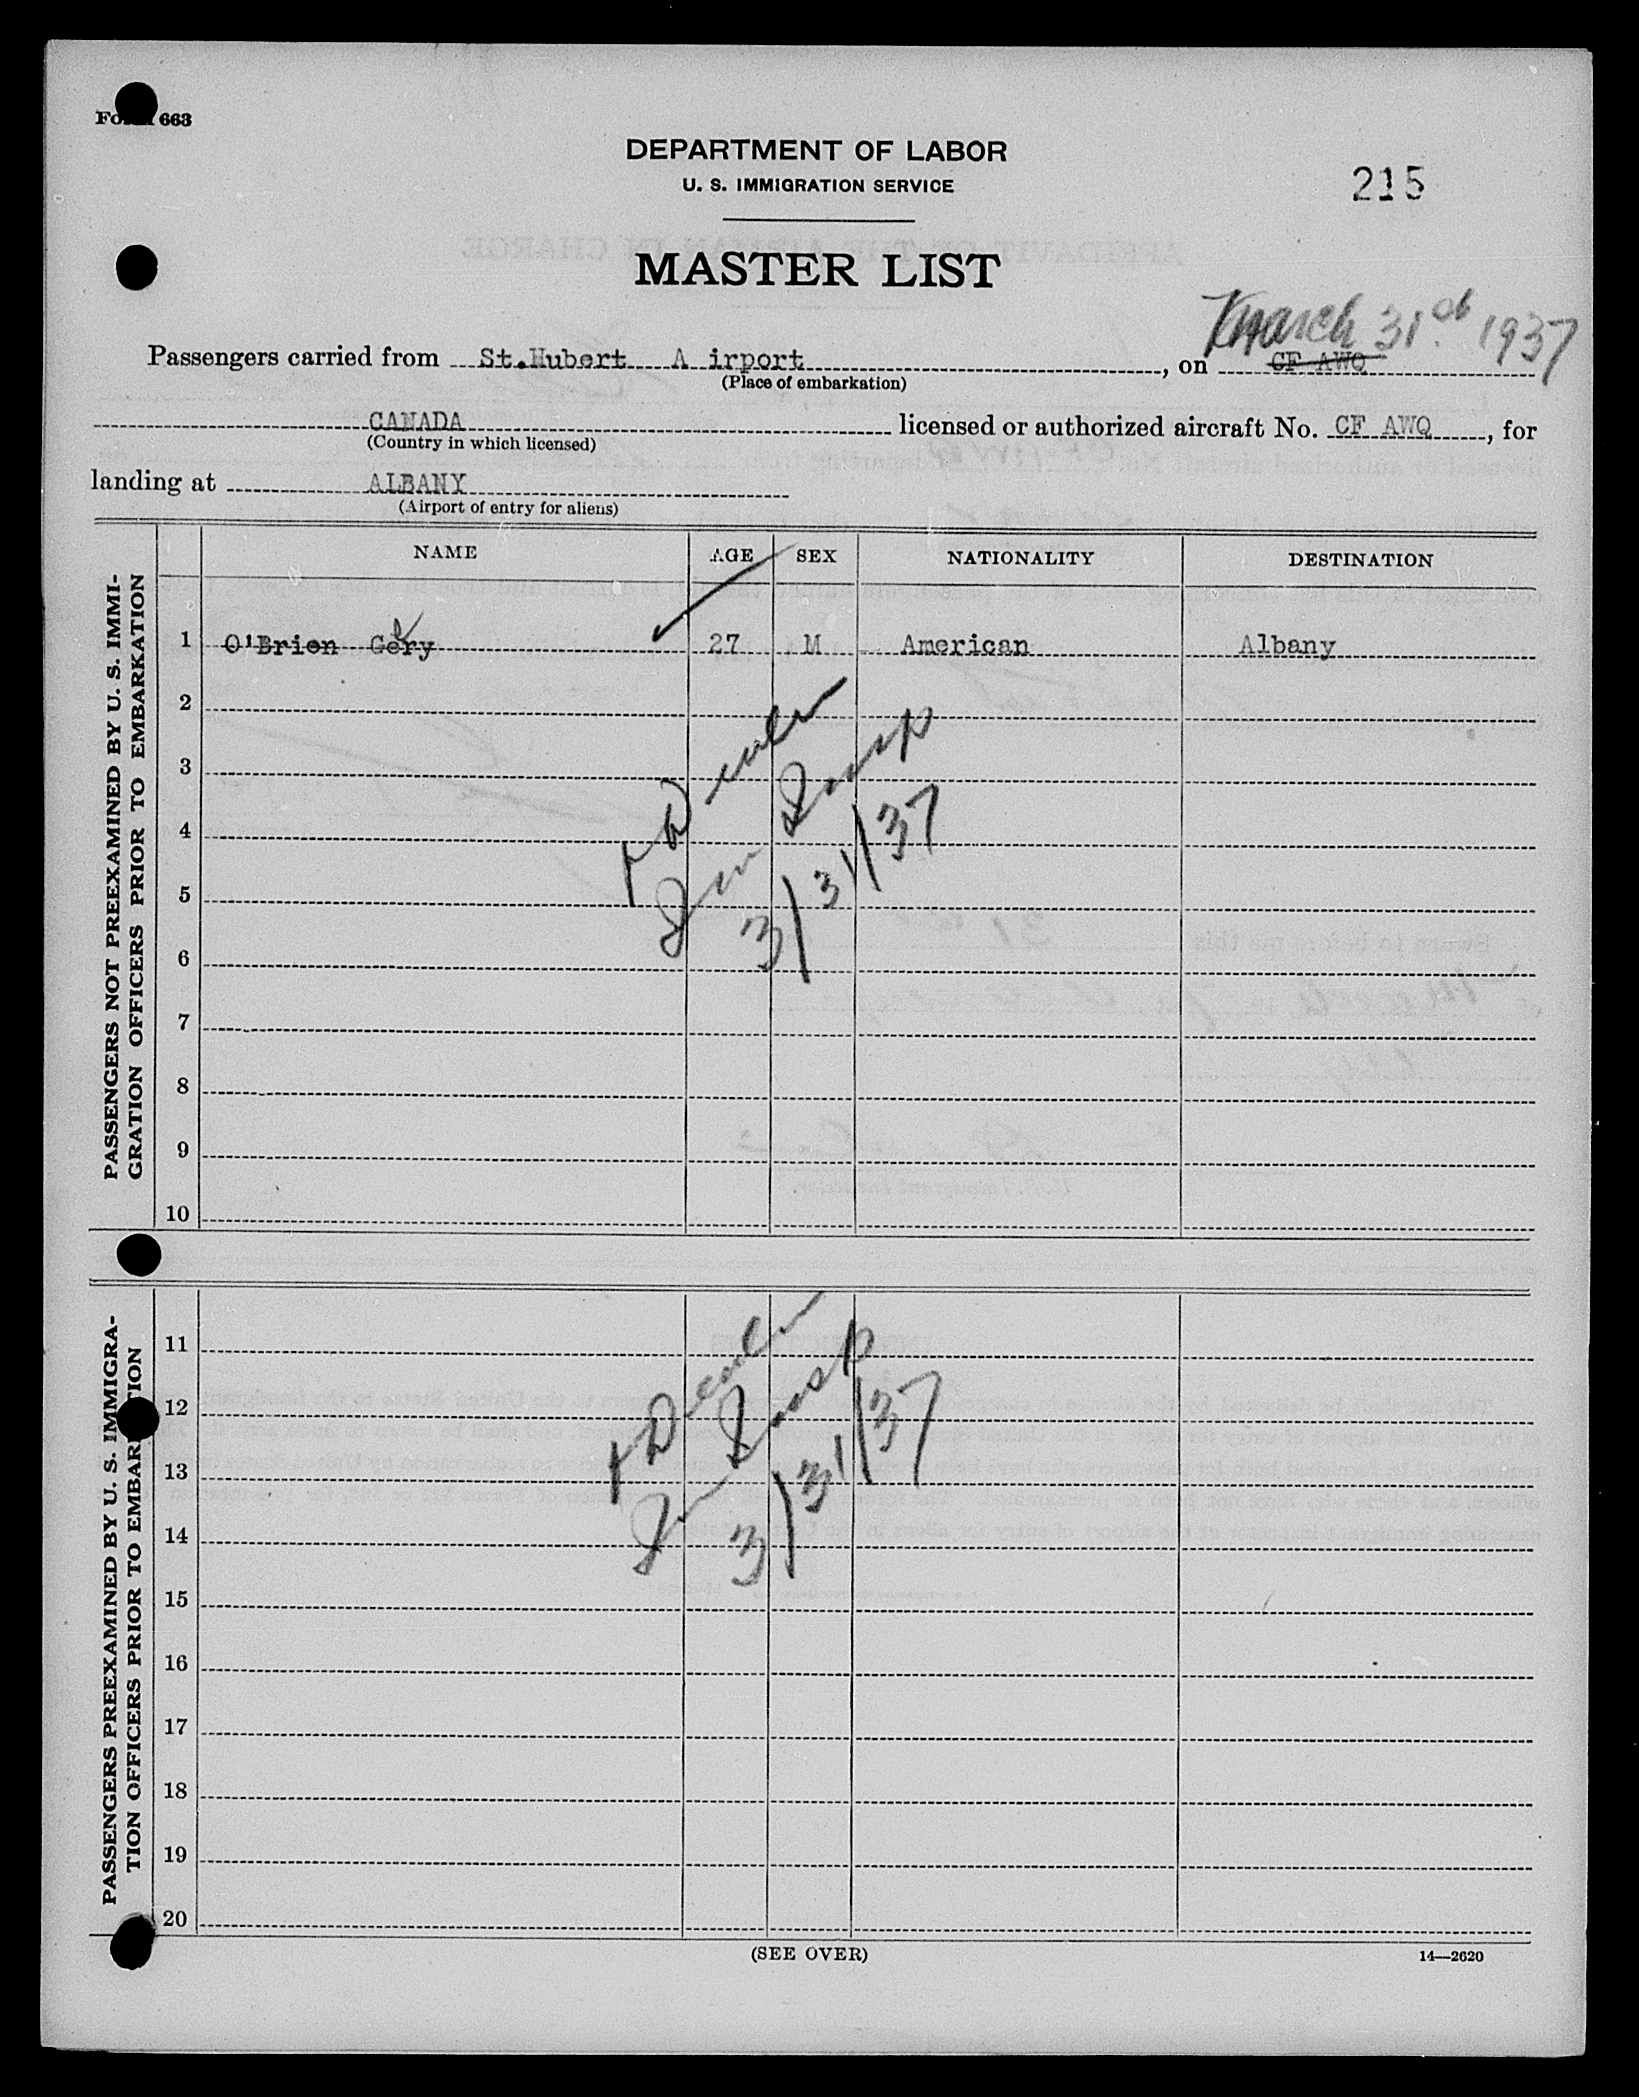 Form 663
DEPARTMENT OF LABOR
U. S. IMMIGRATION SERVICE
215
MASTER LIST
March 31st 1937
Passengers carried from St.Hubert A irport, on CF AWQ
(Place of embarkation)
CANADA licensed or authorized aircraft No. CF AWQ, for
(Country in which licensed)
landing at ALBANY
(Airport of entry for aliens)
NAME AGE SEX NATIONALITY DESTINATION
PASSENGERS NOT PREEXAMINED BY U. S. IMMI-
GRATION OFFICERS PRIOR TO EMBARKATION
1 O'Brien Gery 27 M American Albany
2
3
4
5
6
7
8
9
10
3/31/37
PASSENGERS PREEXAMINED BY U. S. IMMIGRA-
TION OFFICERS PRIOR TO EMBARKATION
11
12
13
14
15
16
17
18
19
20
3/31/37
(SEE OVER)
14—2620